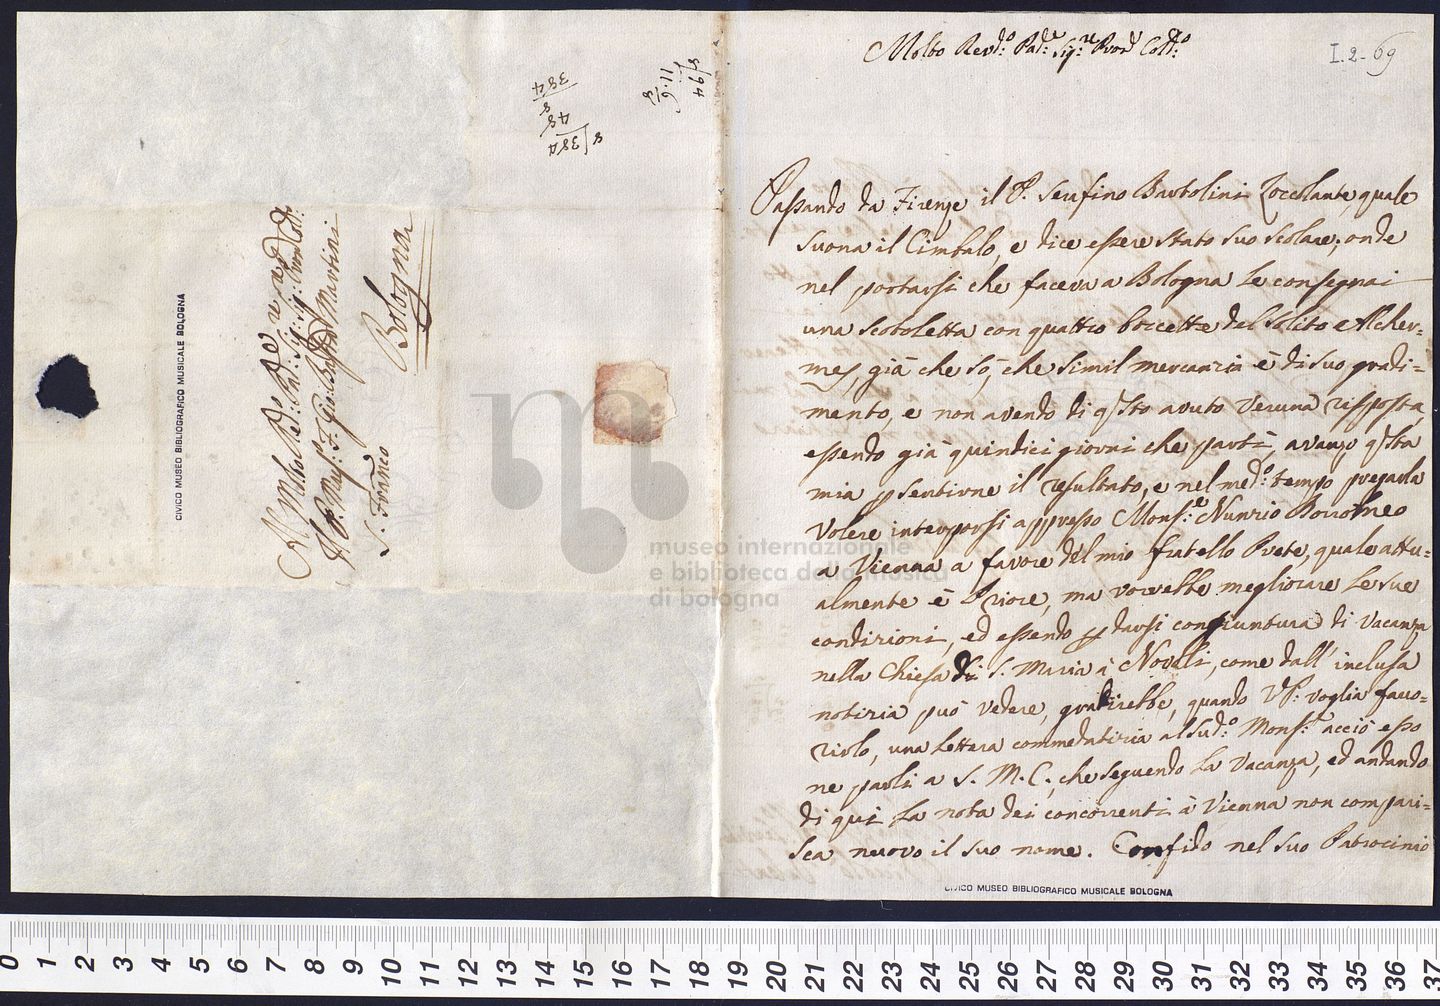 Molto Rev:do Pad:e Sig:re Pron: Coll:mo
I.2-69
Passando da Firenze il P. Serafino Bartolini Zoccolante, quale
suona il Cimbalo, e dice essere stato suo scolare; onde
nel portarsi che faceva a Bologna le consegnai
una scatoletta con quattro boccette del solito e Alcher-
mes, già che sò, che simil mercanzia è di suo gradi=
mento, e non avendo di q'sto avuto veruna risposta,
essendo già quindici giorni che partì, avanzo q'sta
mia p sentirne il resultato, e nel med:o tempo pregarla
volere interporsi appresso Mons:re Nunzio Borromeo
a Vienna a favore del mio fratello Prete, quale attu=
almente è Priore, ma vorrebbe megliorare le sue
condizioni, ed essendo p darsi congiuntura di vacanza
nella Chiesa di S. Maria à Novoli, come dall' inclusa
notizia può vedere, gradirebbe, quando V.P: voglia favo=
rirlo, una lettera commendatizia al sud:o Mons:re acciò esso
ne parli a S. M. C., che seguendo la vacanza, ed andando
di qui la nota dei concorrenti à Vienna non compari=
sca nuovo il suo nome. Confido nel suo Patrocinio
CIVICO MUSEO BIBLIOGRAFICO MUSICALE BOLOGNA
Al Molto Re:do Pad:e Sig: Sig: Pron Coll:
Il P. Maes: F. Gio: Batta Martini
S. Franco
Bologna
CIVICO MUSEO BIBLIOGRAFICO MUSICALE BOLOGNA
8/384
48
8
384
8/94
11.6/8
museo internazionale
e biblioteca della musica
di bologna
0 1 2 3 4 5 6 7 8 9 10 11 12 13 14 15 16 17 18 19 20 21 22 23 24 25 26 27 28 29 30 31 32 33 34 35 36 37